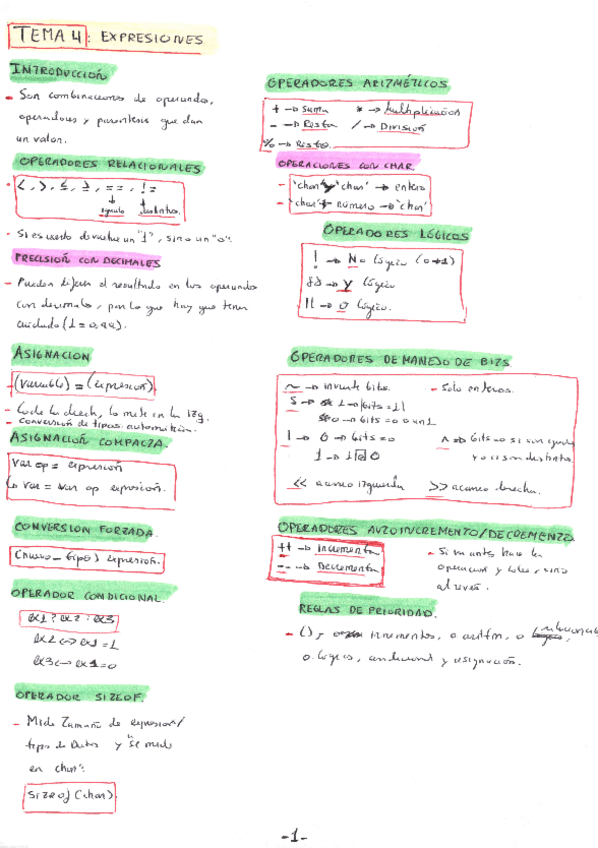 TEMA 4: EXPRESIONES
INTRODUCCIÓN
- Son combinaciones de operandos,
operadores y parentesis que dan
un valor.
OPERADORES RELACIONALES
<, >, ≤, ≥, ==, !=
igualdad distintos
- Si es cierto devuelve un "1", sino un "0".
PRECISIÓN CON DECIMALES
- Pueden diferir el resultado en los operandos
con decimales, por lo que hay que tener
cuidado (1 = 0,99).
ASIGNACION
- (variable) = (expresión)
- Coge la derech, lo mete en la izq.
- conversión de tipos automática.
ASIGNACIÓN COMPACTA.
var op = expresión
↳ var = var op expresión.
CONVERSION FORZADA.
(nuevo_tipo) expresión.
OPERADOR CONDICIONAL.
ex1 ? ex2 : ex3
ex2 <-> ex1 = 1
ex3 <-> ex1 = 0
OPERADOR SIZEOF.
- Mide Tamaño de expresión/
tipo de Datos y "se mide
en char".
sizeof (char)
OPERADORES ARITMÉTICOS
+ -> Suma * -> Multiplicación
- -> Resta / -> División
% -> Resto.
OPERACIONES CON CHAR.
- 'char' y 'char' -> entero
- 'char' + número -> 'char'
OPERADORES LÓGICOS
! -> No lógico (0→1)
&& -> y lógico
|| -> o lógico.
OPERADORES DE MANEJO DE BITS.
~ -> invierte bits. - Solo enteros.
& -> 1 -> bits = 11
0 -> bits = 0 o un 1
| -> 0 -> bits = 0 ^ -> bits = 0 si son iguales
1 -> 1 o 0 y 1 si son distintos
<< avance izquierda >> avance derecha.
OPERADORES AUTOINCREMENTO/DECREMENTO
++ -> incrementa - Si va antes hace la
-- -> Decrementa operación y coge, sino
al revés.
REGLAS DE PRIORIDAD.
- (), incrementos, o aritm, o relacional
o logico, condicional y asignación.
-1-